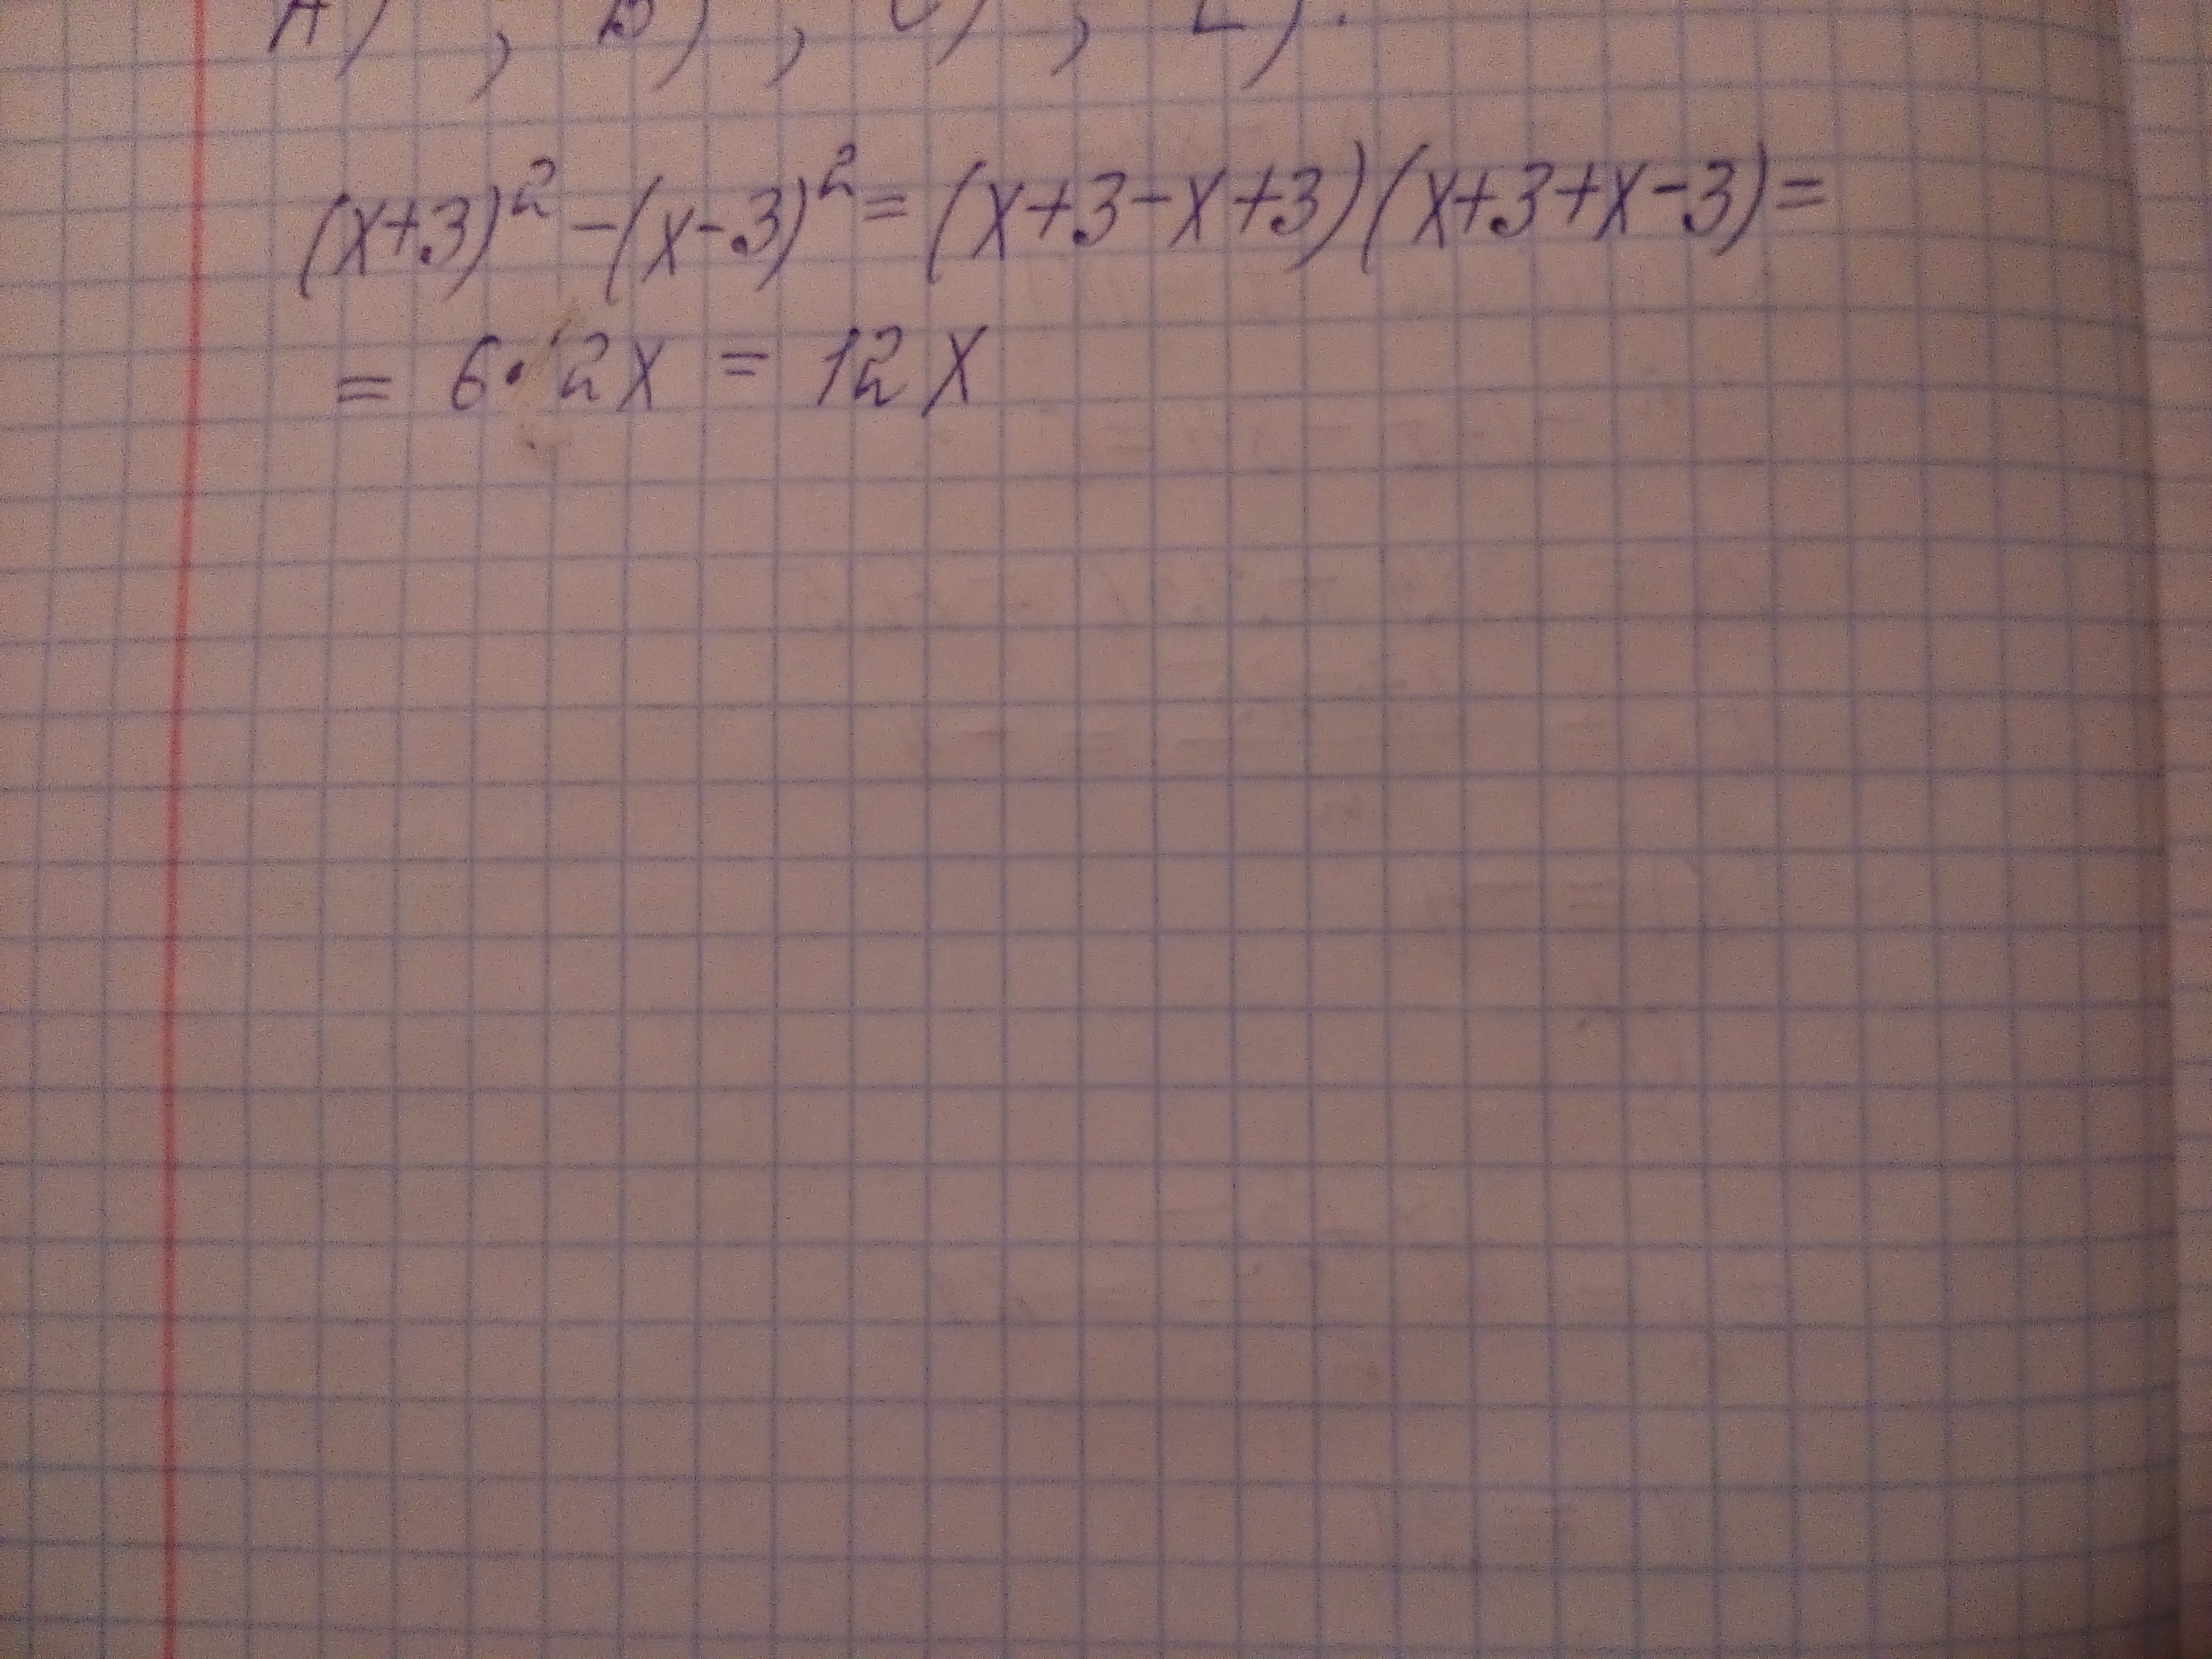 A) , B) , C) ,
(x+3)² -(x-3)² = (x+3-x+3)(x+3+x-3)=
= 6· 2x = 12x